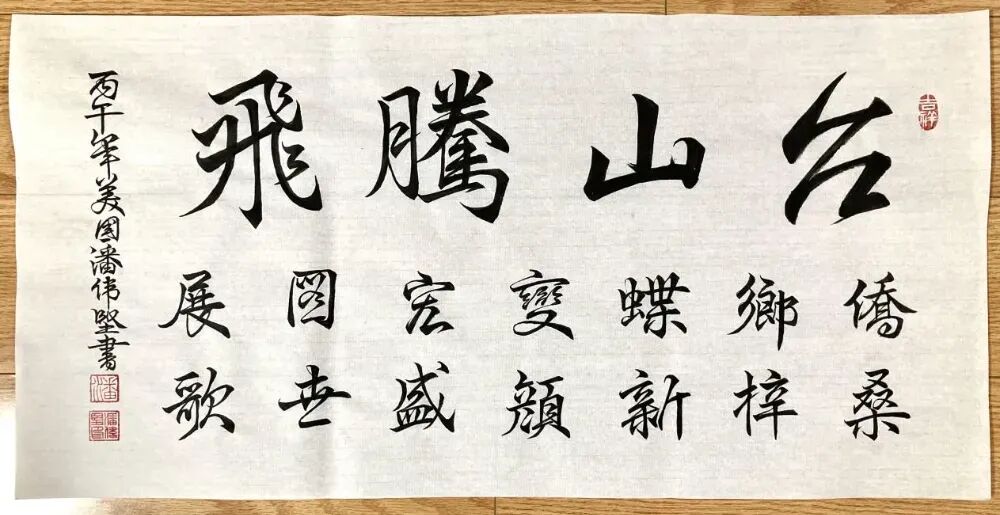 吉祥
台山騰飛
僑鄉蝶變宏圖展
桑梓新顏盛世歌
丙午年美國潘伟堅書
潘